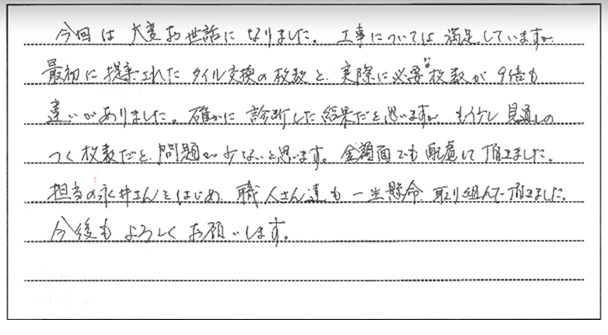 今回は大変お世話になりました。工事については満足していますが
最初に提示されたタイル交換の枚数と、実際に必要な枚数が9倍も
違いがありました。確かに診断した結果だと思いますが、もう少し見通しの
つく枚数だと、問題が少ないと思います。金額面でも配慮して頂きました。
担当の永井さんをはじめ、職人さん達も一生懸命取り組んで頂きました。
今後もよろしくお願いします。